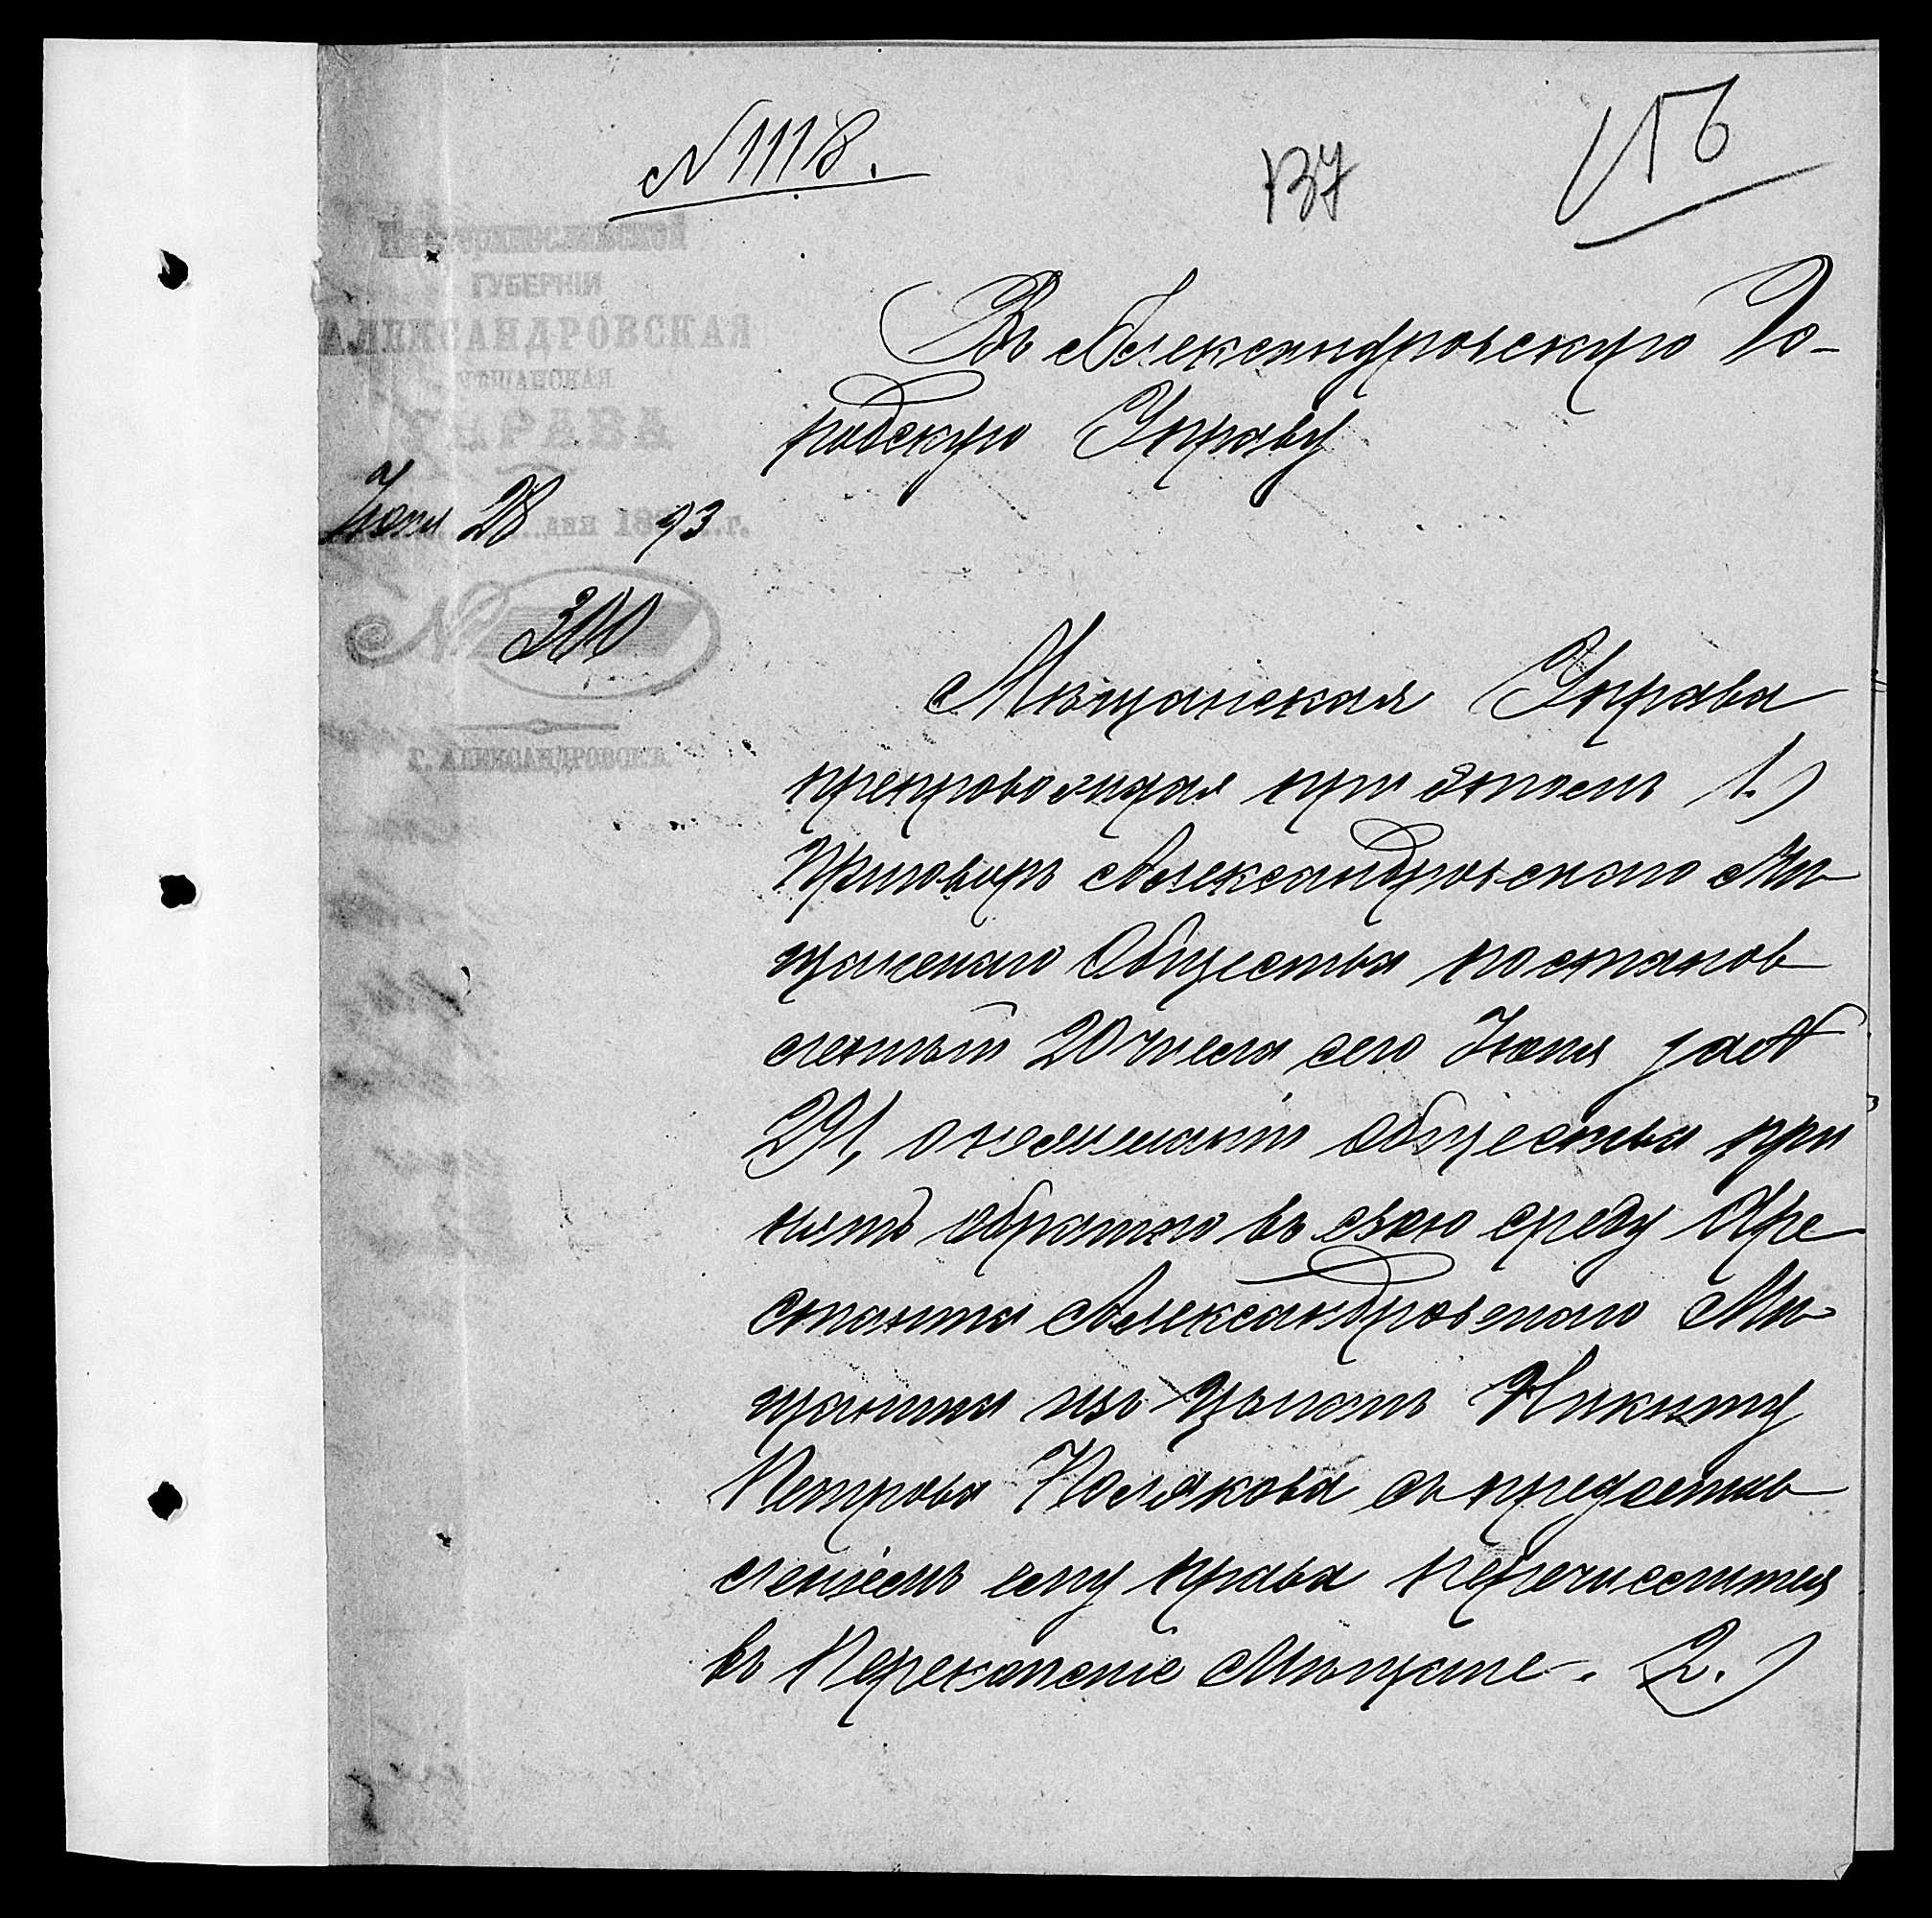 № 1118.
137
156
Екатеринославской
ГУБЕРНІИ
АЛЕКСАНДРОВСКАЯ
МѢЩАНСКАЯ
УПРАВА
Іюня 28 дня 1893 г.
№ 300
Г. АЛЕКСАНДРОВСКЪ.
Въ Александровскую Го-
родскую Управу
Мѣщанская Управа
препровождая при этомъ 1.)
Приговоръ Александровскаго Мѣ
щанскаго Общества постанов
леный 20 числа сего Іюня за №
291, о нежеланіи общества при
нять обратно въ свою среду Аре
станта Александровскаго Мѣ-
щанина изъ Цыганъ Никиту
Петрова Полякова съ предостав
леніемъ ему права перечислится
въ Перекопскіе Мѣщане. 2.)